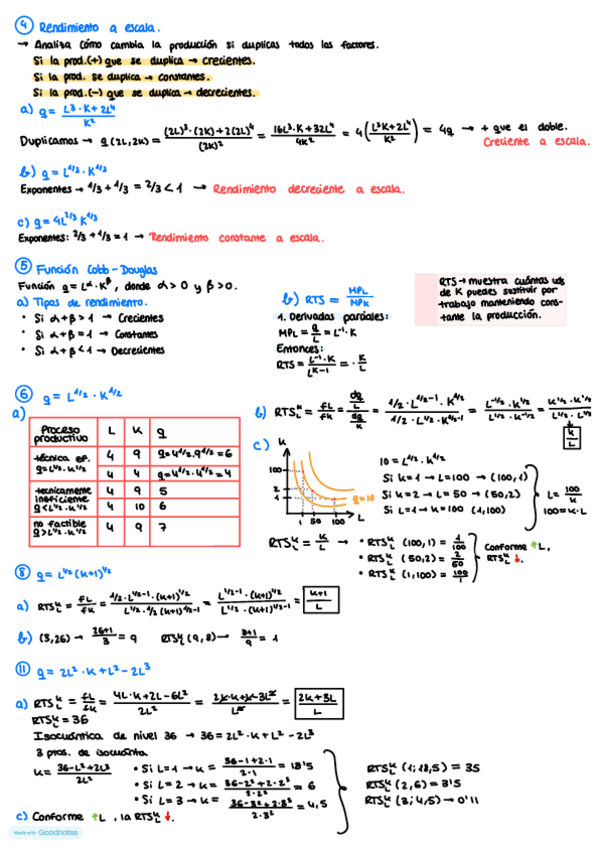 ④ Rendimiento a escala.
→ Analiza cómo cambia la producción si duplicas todos los factores.
Si la prod.(+) que se duplica → crecientes.
Si la prod. se duplica → constantes.
Si la prod.(-) que se duplica → decrecientes.
a) q = (L³·K + 2L⁴)/K²
Duplicamos → q(2L, 2K) = ((2L)³·(2K) + 2(2L)⁴)/(2K)² = (16L³·K + 32L⁴)/4K² = 4((L³K + 2L⁴)/K²) = 4q → + que el doble.
Creciente a escala.
b) q = L^1/3 · K^1/3
Exponentes → 1/3 + 1/3 = 2/3 < 1 → Rendimiento decreciente a escala.
c) q = 4L^2/3 K^1/3
Exponentes: 2/3 + 1/3 = 1 → Rendimiento constante a escala.
⑤ Función Cobb-Douglas
Función q = L^α · K^β, donde α > 0 y β > 0.
a) Tipos de rendimiento.
• Si α+β > 1 → Crecientes
• Si α+β = 1 → Constantes
• Si α+β < 1 → Decrecientes
b) RTS = MPL/MPK
1. Derivadas parciales:
MPL = q/L = L⁻¹·K
Entonces:
RTS = L⁻¹·K/LK⁻¹ = · K/L
RTS → muestra cuántas uds
de K puedes sustituir por
trabajo manteniendo cons-
tante la producción.
⑥ q = L^1/2 · K^1/2
a)
Proceso productivo L K q
técnica ef. q=L^1/2·K^1/2 4 9 q=4^1/2·9^1/2 = 6
4 4 q=4^1/2·4^1/2 = 4
tecnicamente ineficiente q<L^1/2·K^1/2 4 9 5
4 10 6
no factible q>L^1/2·K^1/2 4 9 7
b) RTS = fL/fK = (dq/L)/(dq/K) = (1/2·L^1/2-1·K^1/2)/(1/2·L^1/2·K^1/2-1) = (L^-1/2·K^1/2)/(L^1/2·K^-1/2) = (K^1/2·K^1/2)/(L^1/2·L^1/2)
K/L
c)
K
100
2
1
1 50 100 L
q=10
10 = L^1/2 · K^1/2
Si K=1 → L=100 → (100,1)
Si K=2 → L=50 → (50,2)
Si L=1 → K=100 (1,100)
L = 100/K
100 = K·L
RTS = K/L → • RTS (100,1) = 1/100
• RTS (50,2) = 2/50
• RTS (1,100) = 100/1
Conforme ↑L,
RTS ↓.
⑧ q = L^1/2 (K+1)^1/2
a) RTS = fL/fK = (1/2·L^1/2-1·(K+1)^1/2)/(L^1/2·1/2(K+1)^1/2-1) = (L^1/2-1·(K+1)^1/2)/(L^1/2·(K+1)^1/2-1) = (K+1)/L
b) (3,26) → (26+1)/3 = 9 RTS (9,8) → (8+1)/9 = 1
⑪ q = 2L²·K + L² - 2L³
a) RTS = fL/fK = (4L·K + 2L - 6L²)/2L² = (2K·K+K-3L²)/L² = (2K+3L)/L
RTS = 36
Isocuántica de nivel 36 → 36 = 2L²·K + L² - 2L³
3 ptos. de isocuanta
K = (36-L²+2L³)/2L²
• Si L=1 → K = (36-1+2·1)/2·1 = 18'5
• Si L=2 → K = (36-2²+2·2³)/2·2² = 6
• Si L=3 → K = (36-3²+2·3³)/2·3² = 4,5
RTS (1;18,5) = 35
RTS (2,6) = 3'5
RTS (3;4,5) → 0'11
c) Conforme ↑L, la RTS ↓.
Made with Goodnotes